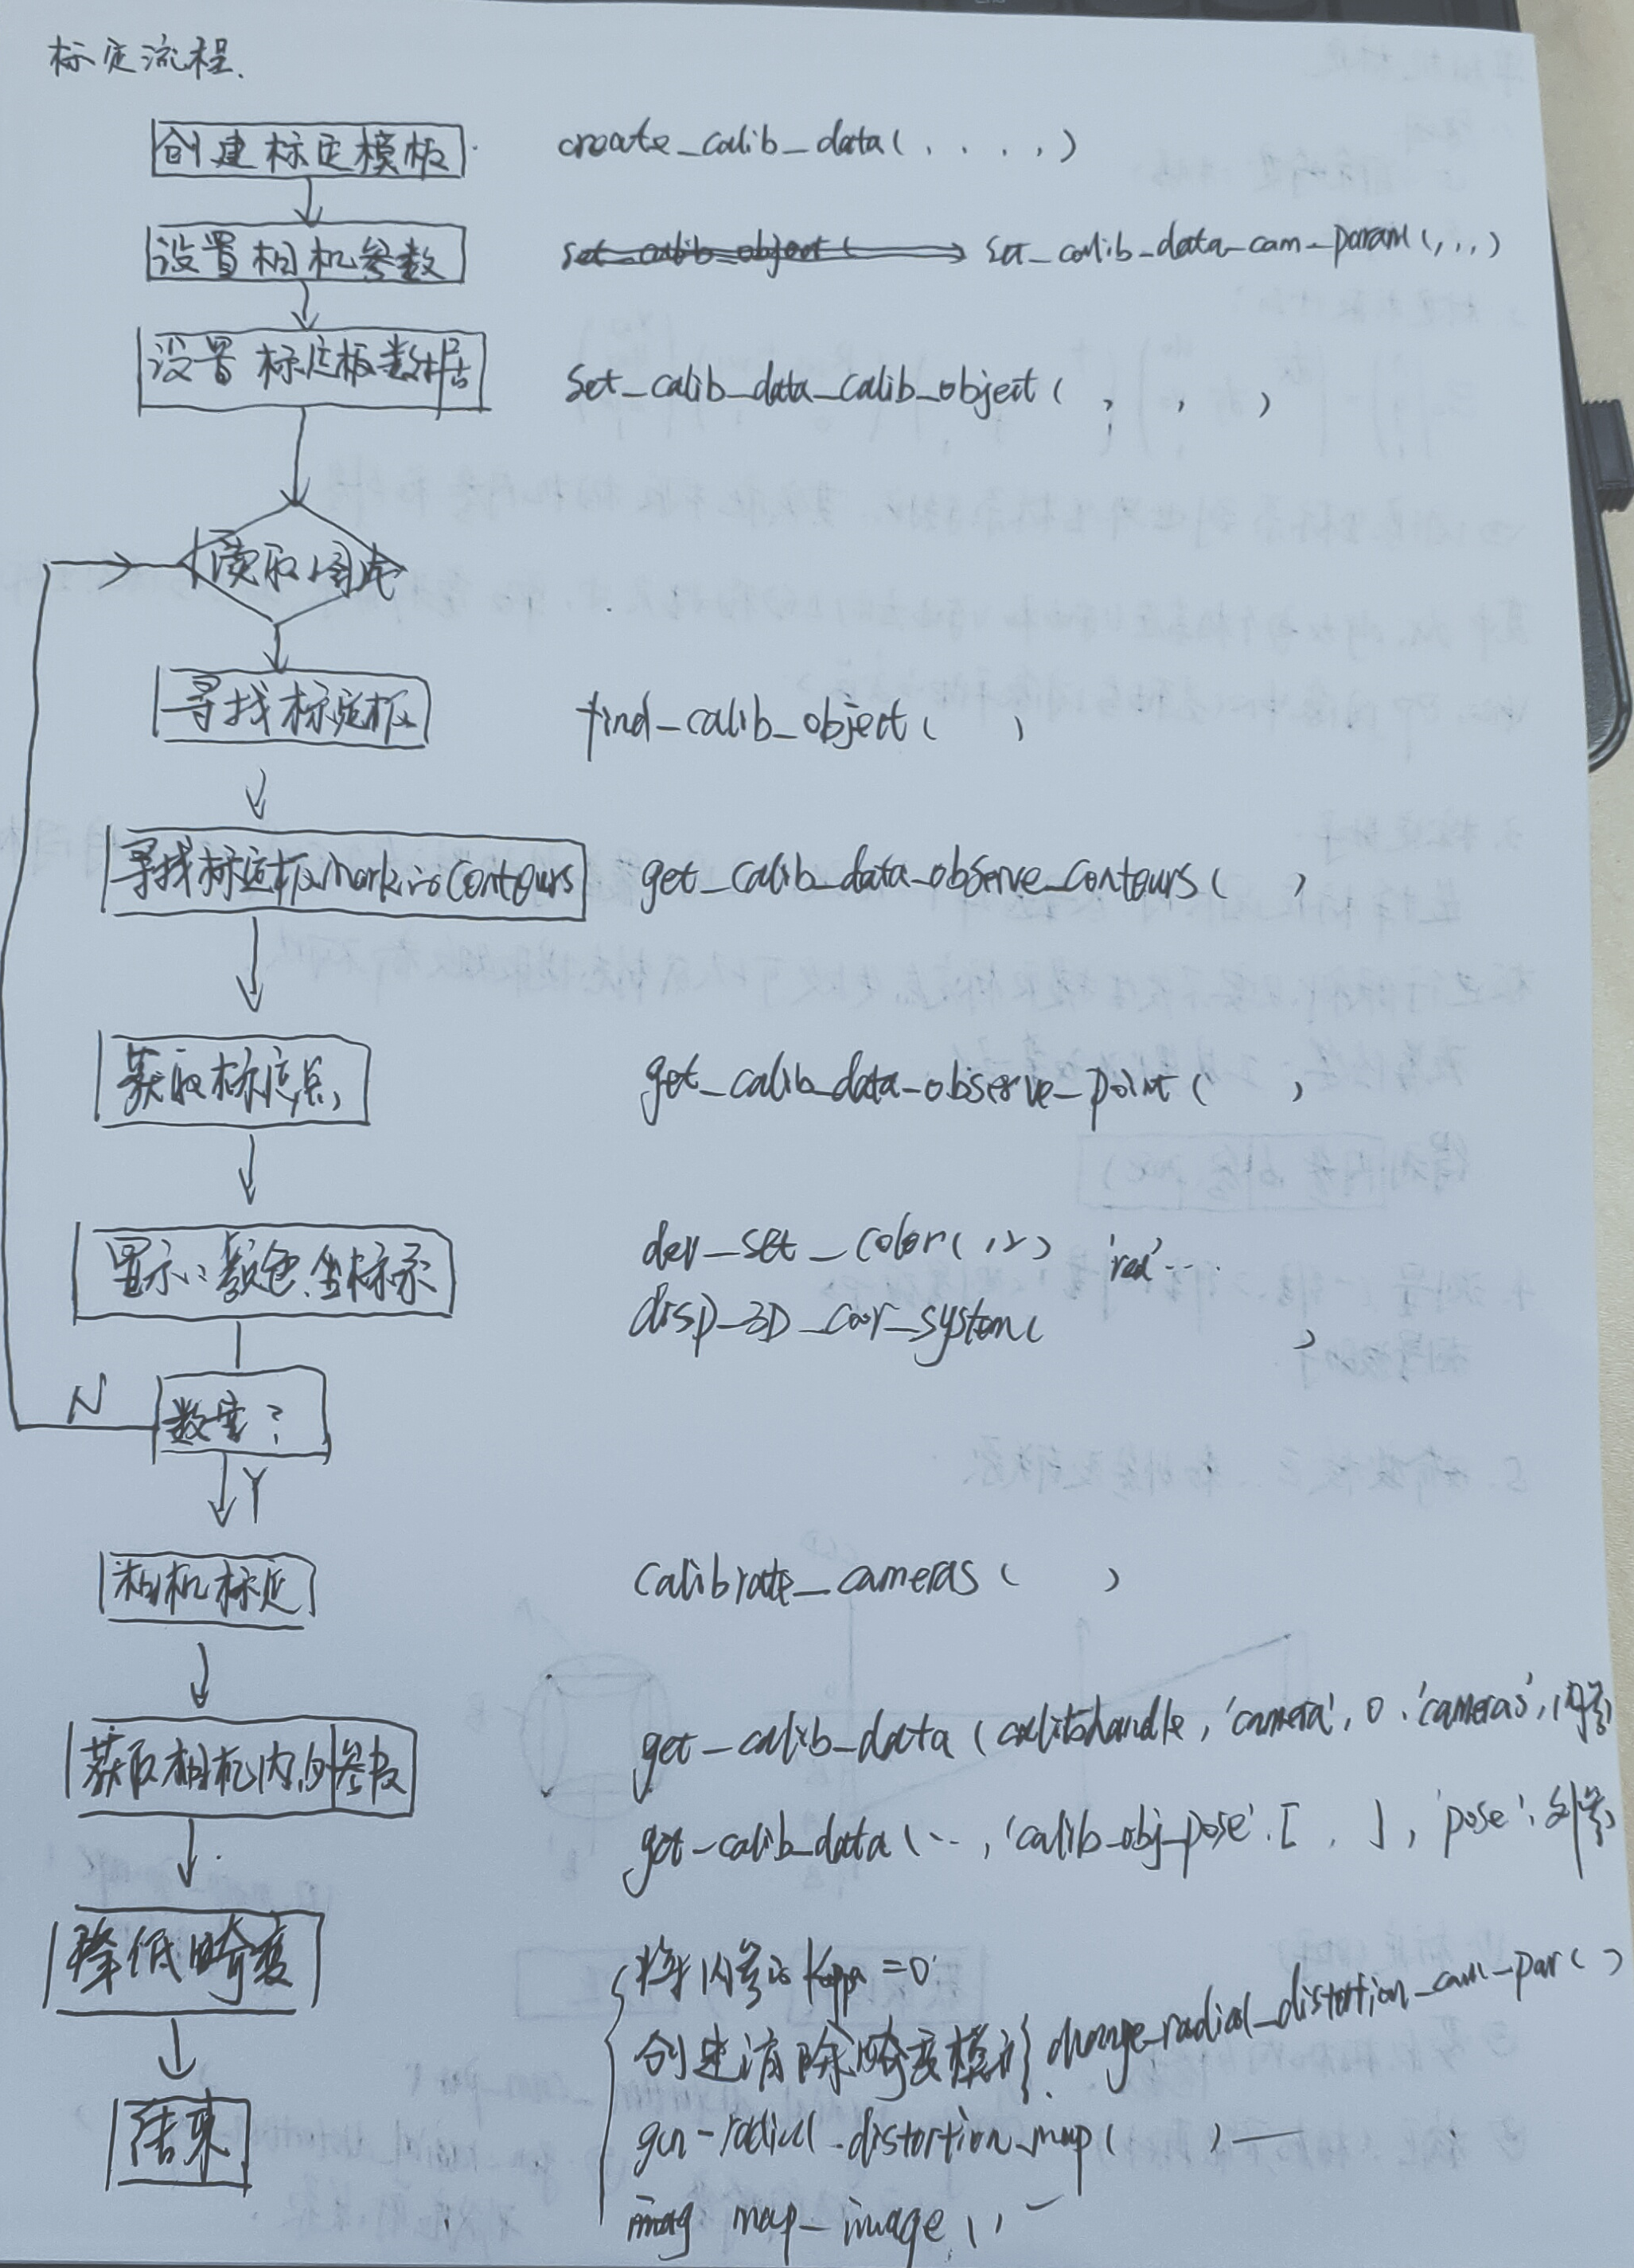 标定流程.
创建标定模板 create_calib_data( , , , , )
设置相机参数 set_calib_object( set_calib_data_cam_param( , , , )
设置标定板数据 set_calib_data_calib_object( , , )
读取图片
寻找标定板 find_calib_object( )
寻找标定板mark的Contours get_calib_data_observe_contours( )
获取标定点 get_calib_data_observe_point( )
显示:颜色.坐标系 dev_set_color( ) 'red'...
disp_3D_coor_system( )
N 数量?
Y
相机标定 calibrate_cameras( )
获取相机内,外参数 get_calib_data(calibhandle, 'camera', 0, 'cameras', 内参)
get_calib_data(..., 'calib_obj_pose', [ , ], 'pose', 外参)
降低畸变 将内参的Kappa=0
创建消除畸变模板 change_radial_distortion_cam_par( )
结束 gen-radial_distortion_map( )
imag map_image( ,